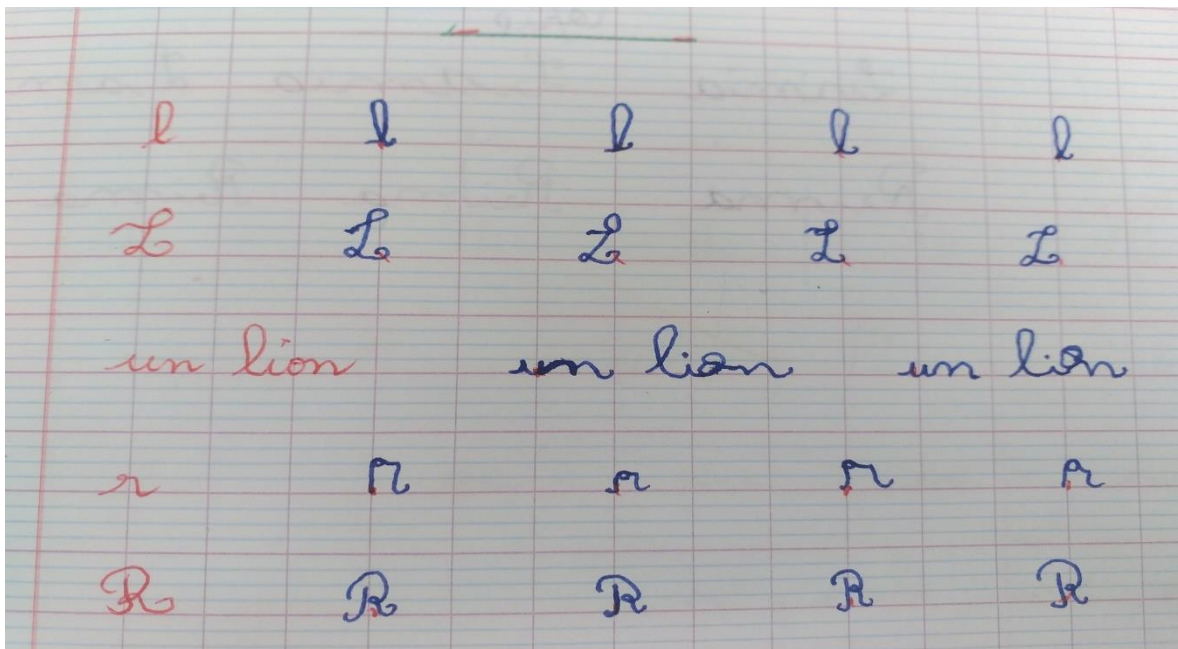 l l l l l
L L L L L
un lion un lion un lion
r r r r r
R R R R R